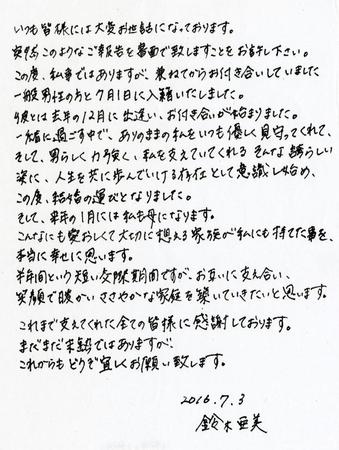 いつも皆様には大変お世話になっております。
突然このようなご報告を書面で致しますことをお許し下さい。
この度、私事ではありますが、兼ねてからお付き合いしていました
一般男性の方と7月1日に入籍いたしました。
彼とは去年の12月に出逢い、お付き合いが始まりました。
一緒に過ごす中で、ありのままの私をいつも優しく見守ってくれて、
そして、男らしく力強く、私を支えていてくれる そんな誇らしい
姿に、人生を共に歩んでいける存在として意識し始め、
この度、結婚の運びとなりました。
そして、来年の1月には私も母になります。
こんなにも愛おしくて大切に想える家族が私にも持てた事を、
本当に幸せに思います。
半年間という短い交際期間ですが、お互いに支え合い、
笑顔で暖かい ささやかな家庭を築いていきたいと思います。
これまで支えてくれた全ての皆様に感謝しております。
まだまだ未熟ではありますが、
これからもどうぞ宜しくお願い致します。
2016.7.3
鈴木亜美